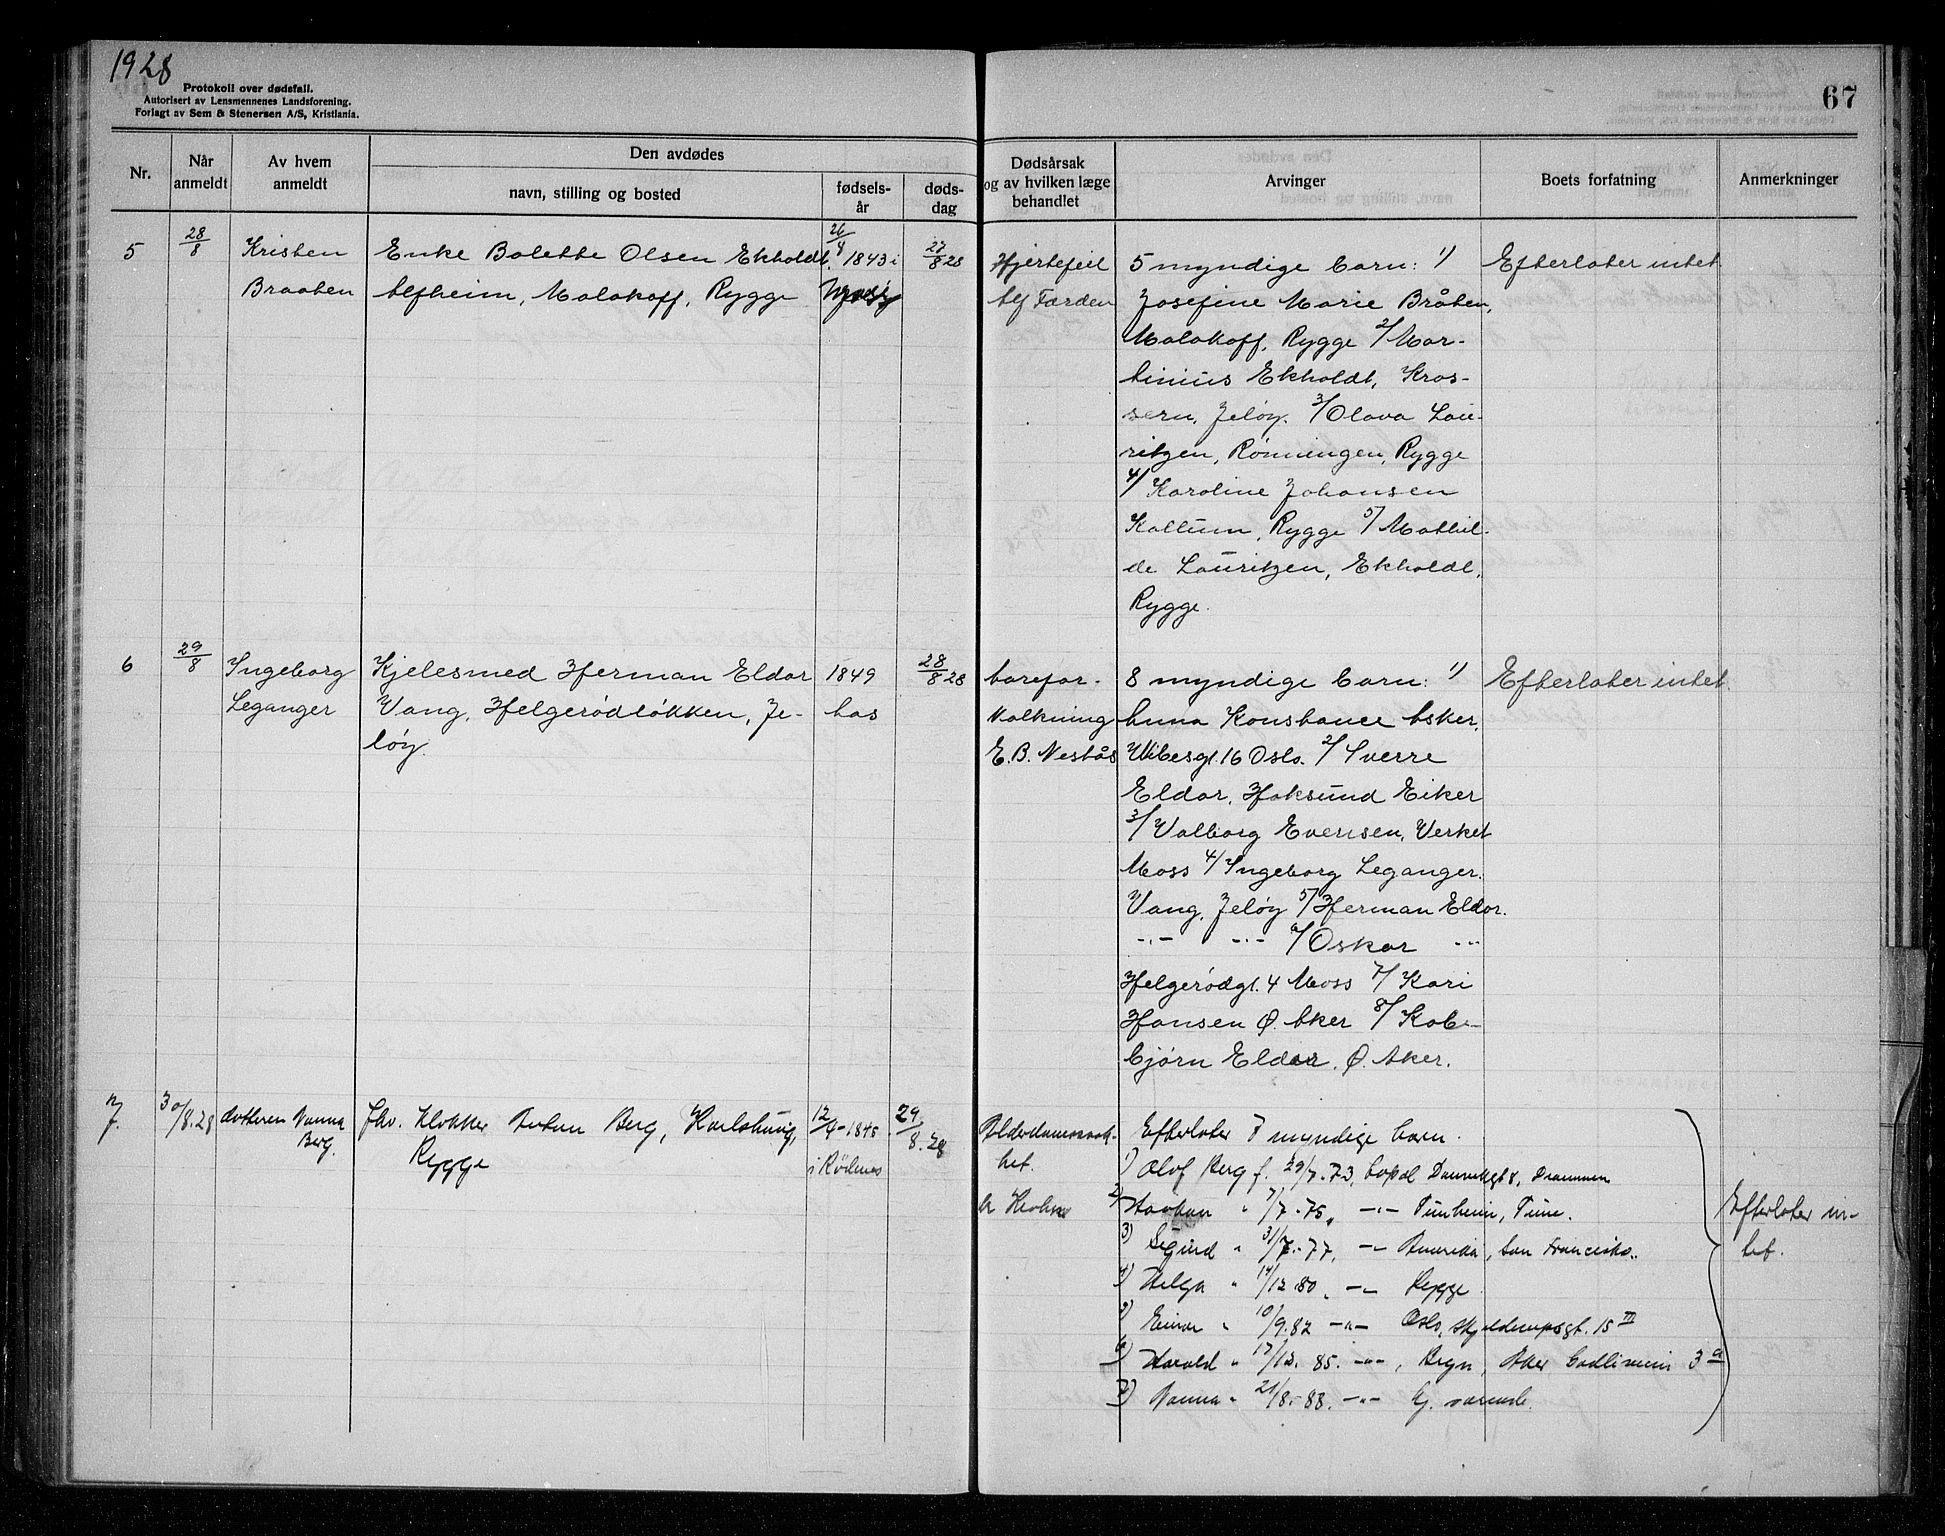 1928
Protokoll over dødsfall.
Autorisert av Lensmennenes Landsforening.
Forlagt av Sem & Stenersen A/S, Kristiania.
67
Nr.
Når anmeldt
Av hvem anmeldt
Den avdødes
navn, stilling og bosted
fødsels-år
døds-dag
Dødsårsak og av hvilken læge behandlet
Arvinger
Boets forfatning
Anmerkninger
5 28/8 Kristen Enke Bolette Olsen Ekholdt 26/4 1843 i 27/8 28
Braaten Alfheim, Malakoff, Rygge
Hjertefeil 5 myndige barn: 1/ Efterlater intet
Alf Færden Josefine Marie Bråten,
Malakoff, Rygge 2/ Mar-
tinius Ekholdt, Kros-
sern, Jeløy. 3/ Olava Lau-
ritzen, Rønningen, Rygge
4/ Karoline Johansen
Kallum, Rygge 5/ Mathil-
de Lauritzen, Ekholdt,
Rygge.
6 29/8 Ingeborg Kjelesmed Herman Eldor 1849 28/8 28
Leganger Vang, Helgerødløkken, Je-
løy.
Arefor- 8 myndige barn: 1/ Efterlater intet
kalkning Anna Konstance Asker,
E.B. Nestås Uibesgt. 16 Oslo. 2/ Sverre
Eldor, Hoksund Eiker
3/ Valborg Evensen, Verket
Moss 4/ Ingeborg Leganger.
Vang, Jeløy 5/ Herman Eldor.
-"- -"- 6/ Oskar -"-
Helgerødgt. 4 Moss 7/ Kari
Hansen Ø. Aker 8/
bjørn Eldor, Ø. Aker.
7. 30/8.28 datteren Nanna Berg. fhv. Klokker Anton Berg, Karlshus, 12/4-1845 29/8.28
Rygge i Rødenes
Alderdomssvak-
het.
Efterlater 7 myndige barn.
1) Olof Berg f. 29/7.73, Danmarksgt 8, Drammen
2) Haakon " 7/7-75, -"- Tunheim, Tune.
3) Sigurd " 31/7-77, -"- Amerika, San Francisko.
4) Helga " 14/12 80, -"- Rygge
5) Einar " 10/9.82 -"- Oslo, Skjoldrupsgt. 15 III
6) Harald " 17/12. 85. -"-, Aker 3 a
7) Nanna " 21/8.-88. -"-
Efterlater in-
tet.